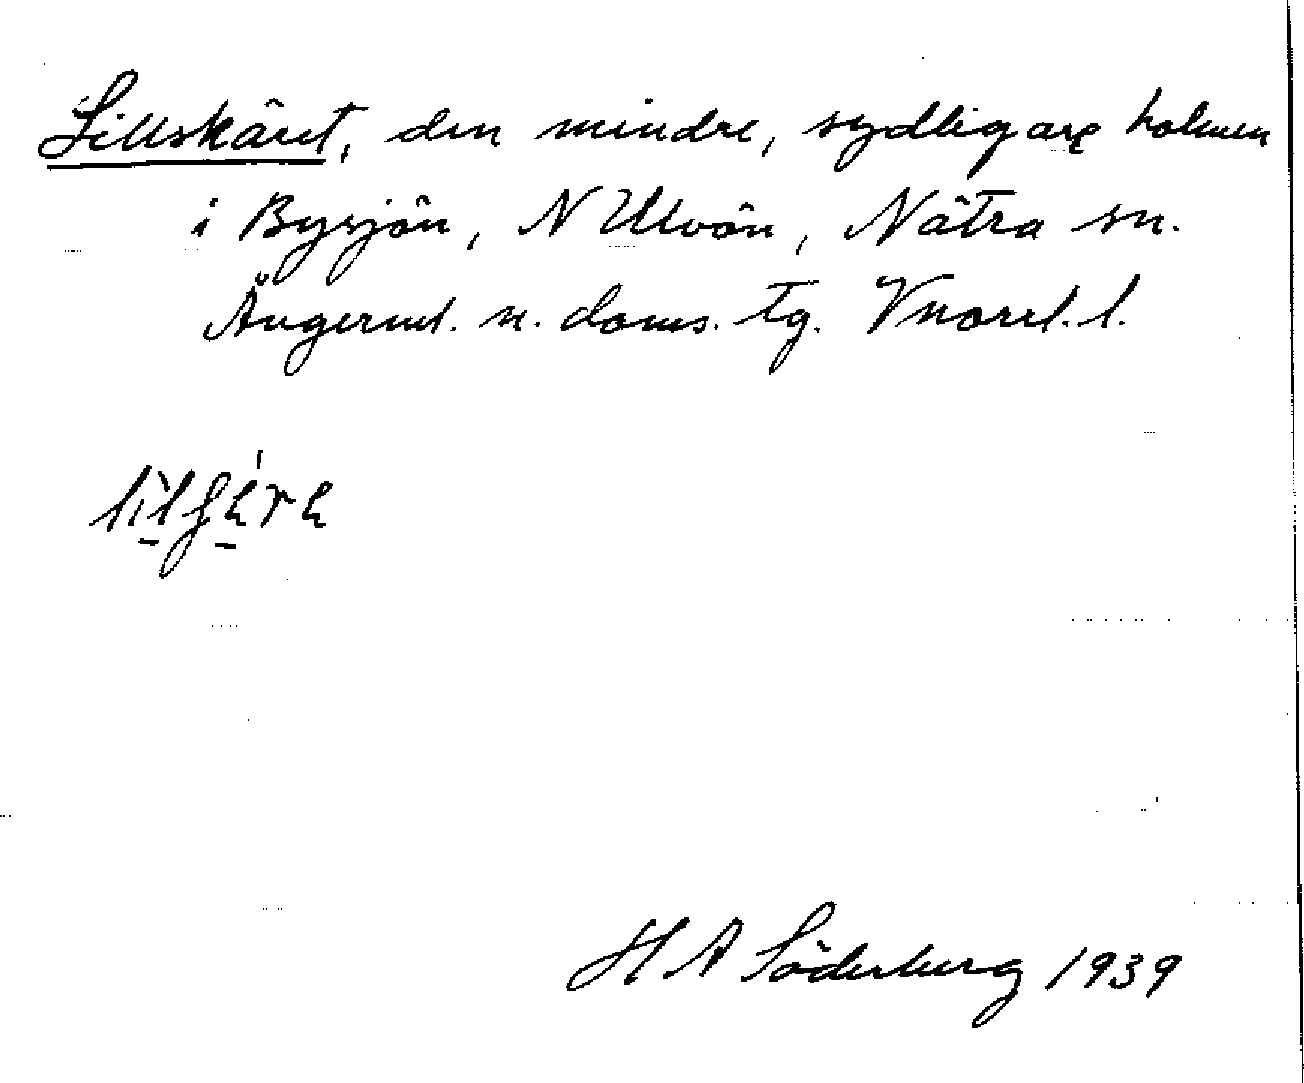 Lillskäret, den mindre, sydligare holmen
i Bysjön, N Ulvön, Nätra sn.
Ångerml. n. doms. tg. Vnorrl. l.
H A Söderberg 1939